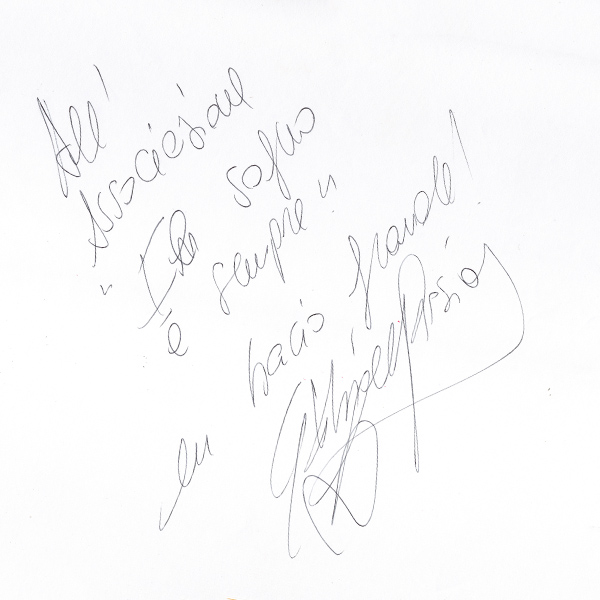 All'
Associazione
"Il sogno
è sempre"
un bacio grande!